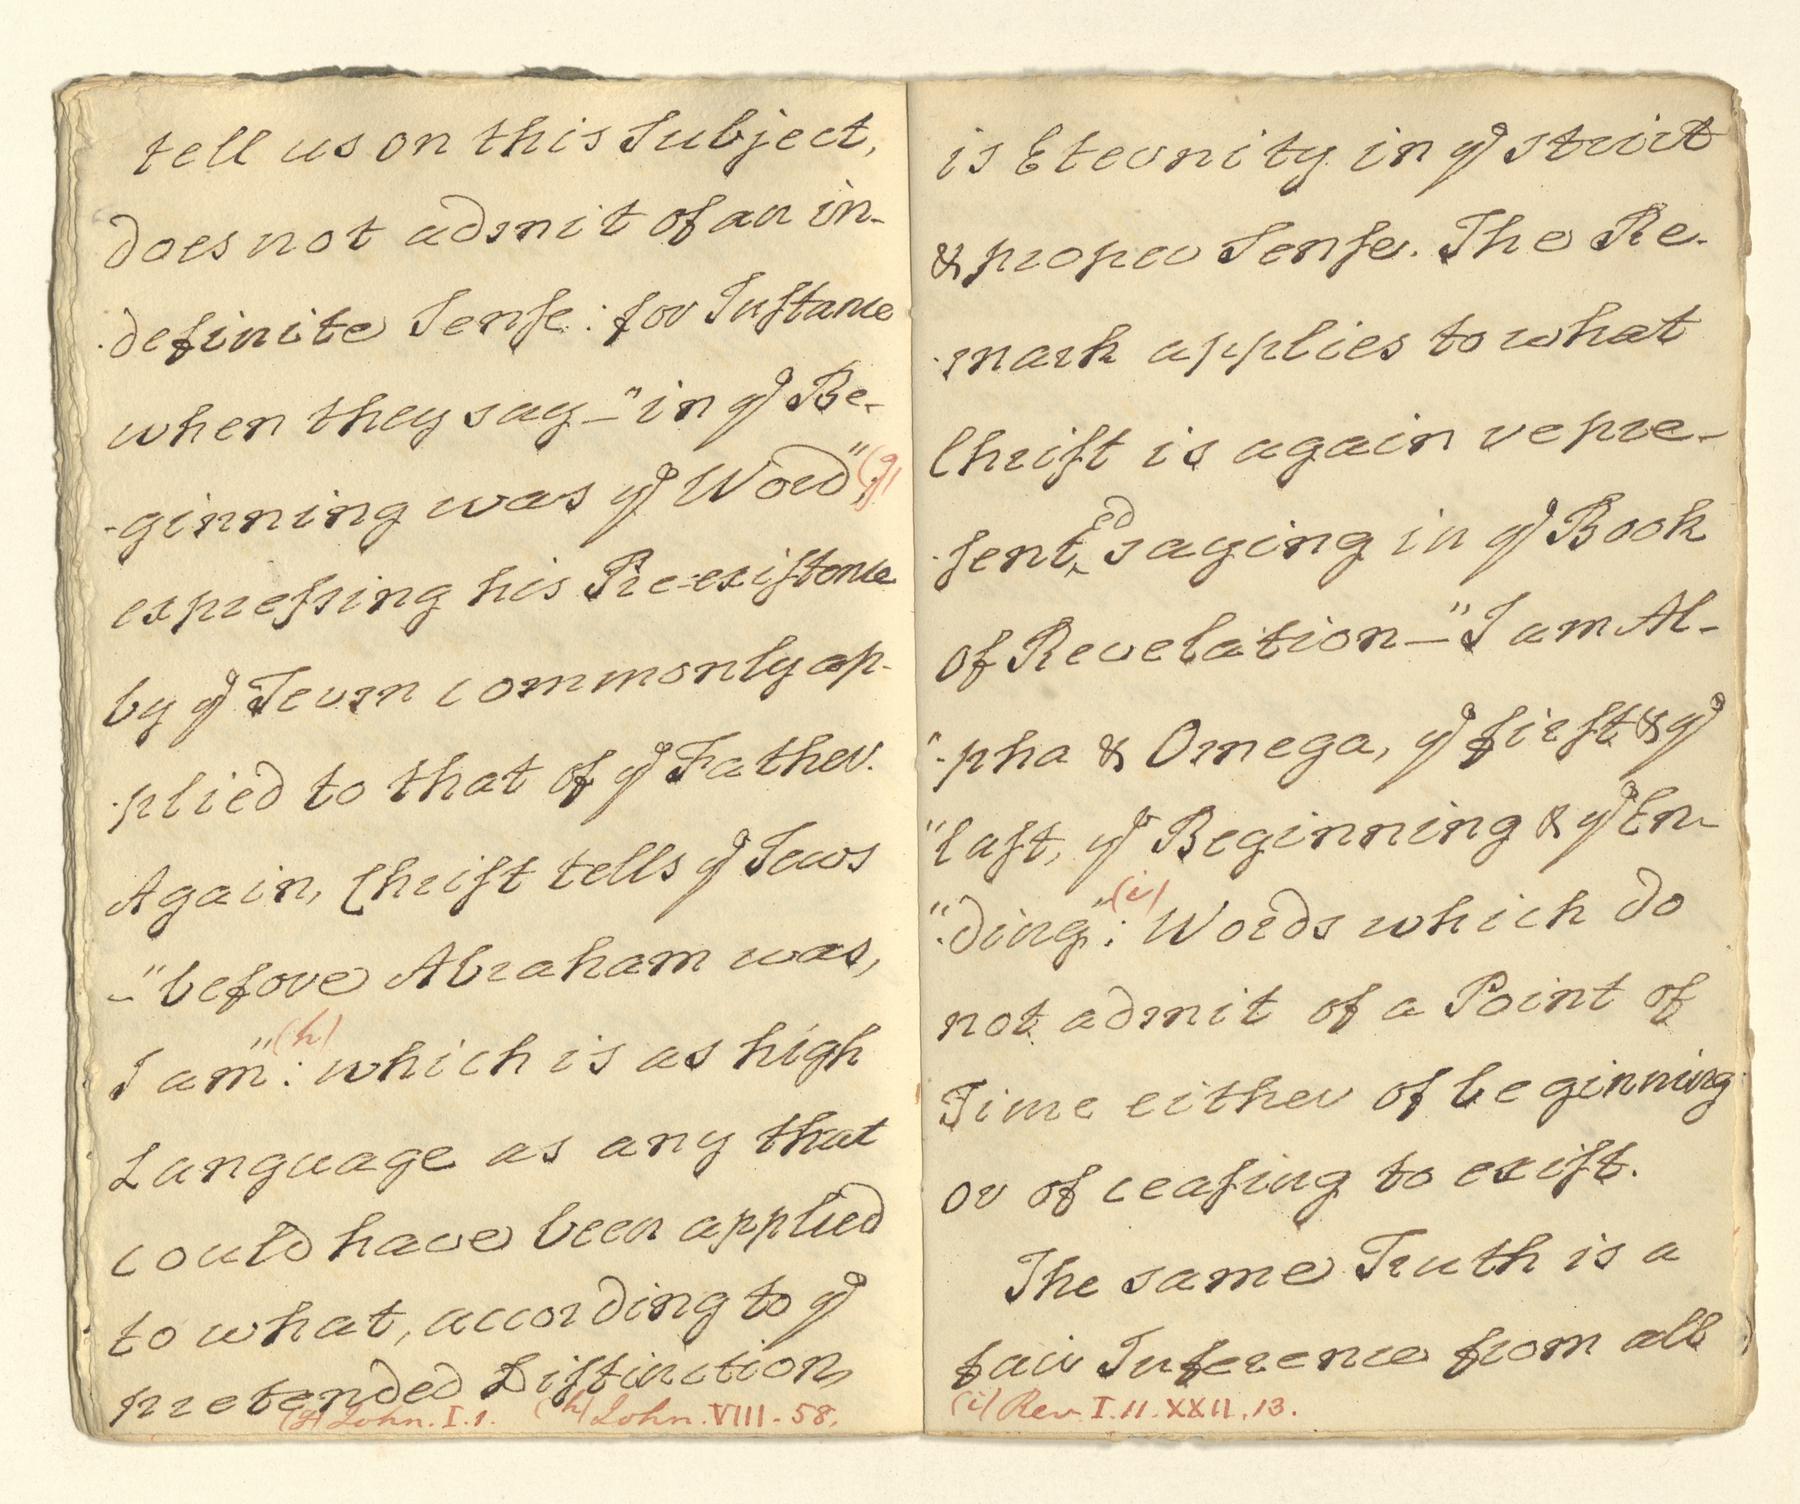 tell us on this Subject,
does not admit of an in-
-definite Sense: for Instance
when they say—"in ye Be-
-ginning was ye Word"; (g)
expressing his Pre-existence
by ye Term commonly ap-
-plied to that of ye Father.
Again, Christ tells ye Jews
—"before Abraham was,
I am": (h) which is as high
Language as any that
could have been applied
to what, according to ye
pretended Distinction,
(g) John. I. 1. (h) John. VIII. 58.
is Eternity in ye strict
& proper Sense. The Re-
-mark applies to what
Christ is again repre-
-sented, saying in ye Book
of Revelation—"I am Al-
"-pha & Omega, ye first & ye
"last, ye Beginning & ye En-
"-ding": (i) Words which do
not admit of a Point of
Time either of beginning
or of ceasing to exist.
The same Truth is a
fair Inference from all
(i) Rev. I. 11. XXII. 13.